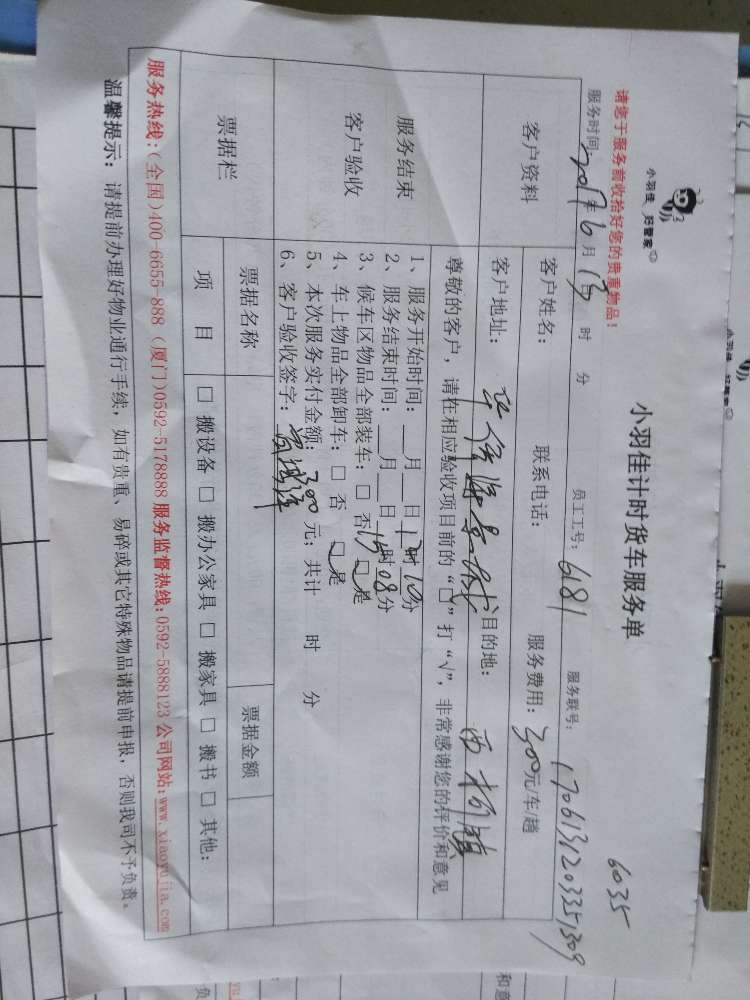 6035
小羽佳 好管家
小羽佳计时货车服务单
请您于服务前收拾好您的贵重物品！
服务时间：2017年6月13日 时 分 员工工号：6181 服务联号：1706131203351309
客户资料
客户姓名： 联系电话： 服务费用：300元/车/趟
客户地址： 目的地：
服务结束
客户验收
尊敬的客户，请在相应验收项目前的“□”打“√”，非常感谢您的评价和意见
1、服务开始时间：__月__日 时10分
2、服务结束时间：__月__日15时08分
3、候车区物品全部装车：□ 否 □是
4、车上物品全部卸车：□ 否 □是
5、本次服务实付金额：300元；共计 时 分
6、客户验收签字：
票据栏
票据名称 票据金额
项 目 □ 搬设备 □ 搬办公家具 □ 搬家具 □ 搬书 □ 其他：
服务热线：(全国)400-6655-888 (厦门)0592-5178888 服务监督热线：0592-5888123 公司网站：www.xiaoyujia.com
温馨提示：请提前办理好物业通行手续，如有贵重、易碎或其它特殊物品请提前申报，否则我司不予负责。